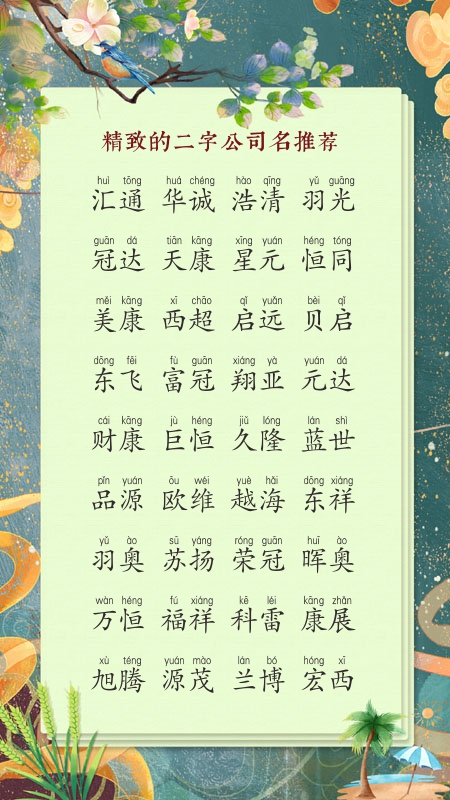 精致的二字公司名推荐
huì tōng huá chéng hào qīng yǔ guāng
汇通 华诚 浩清 羽光
guān dá tiān kāng xīng yuán héng tóng
冠达 天康 星元 恒同
měi kāng xī chāo qǐ yuǎn bèi qǐ
美康 西超 启远 贝启
dōng fēi fù guān xiáng yà yuán dá
东飞 富冠 翔亚 元达
cái kāng jù héng jiǔ lóng lán shì
财康 巨恒 久隆 蓝世
pǐn yuán ōu wéi yuè hǎi dōng xiáng
品源 欧维 越海 东祥
yǔ ào sū yáng róng guān huī ào
羽奥 苏扬 荣冠 晖奥
wàn héng fú xiáng kē léi kāng zhǎn
万恒 福祥 科雷 康展
xù téng yuán mào lán bó hóng xī
旭腾 源茂 兰博 宏西